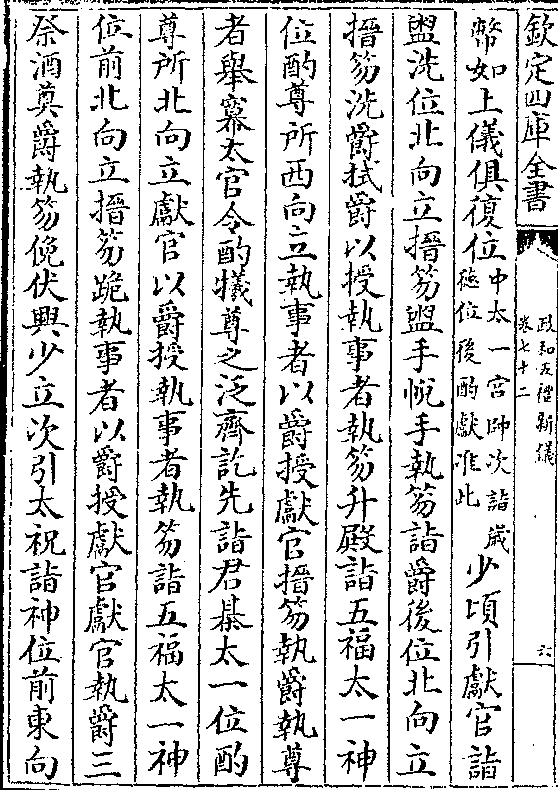 欽定四庫全書
政和五禮新儀
卷七十二
六
幣如上儀俱復位中太一宮即次詣歲
德位後酌獻准此少頃引獻官詣
盥洗位北向立搢笏盥手帨手執笏詣爵後位北向立
搢笏洗爵拭爵以授執事者執笏升殿詣五福太一神
位酌尊所西向立執事者以爵授獻官搢笏執爵執尊
者舉羃太官令酌犧尊之泛齊訖先詣君棊太一位酌
尊所北向立獻官以爵授執事者執笏詣五福太一神
位前北向立搢笏跪執事者以爵授獻官獻官執爵三
祭酒奠爵執笏俛伏興少立次引太祝詣神位前東向